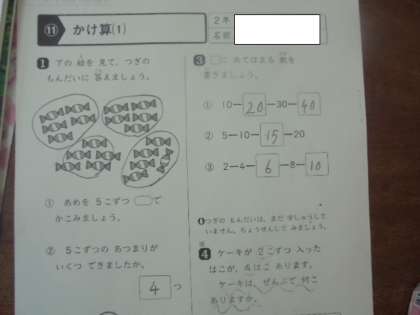 ⑪ かけ算(1)
2年
名前
1 下の 絵を 見て、つぎの
もんだいに 答えましょう。
① あめを 5こずつ ◯で
かこみましょう。
② 5こずつの あつまりが
いくつ できましたか。
4つ
3 □に あてはまる 数を
書きましょう。
① 10―20―30―40
② 5―10―15―20
③ 2―4―6―8―10
つぎの もんだいは、まだ 学しゅうして
いません。ちょうせんして みましょう。
4 ケーキが 2こずつ 入った
はこが、4はこ あります。
ケーキは、ぜんぶで 何こ
ありますか。